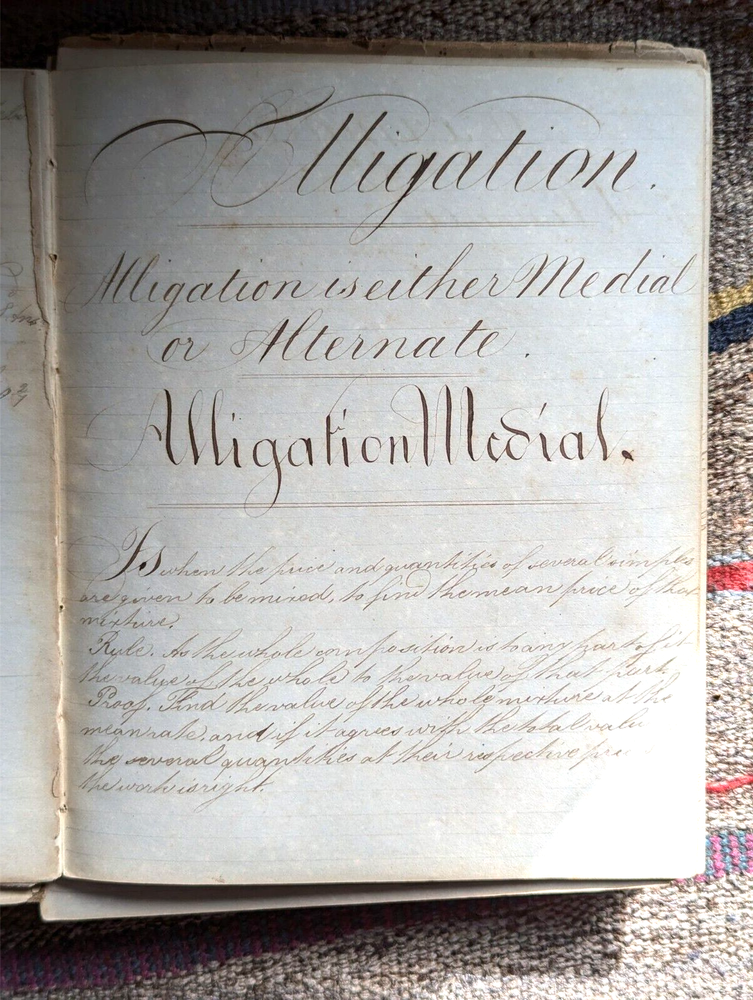 Alligation.
Alligation is either Medial
or Alternate.
Alligation Medial.
Is when the price and quantities of several simples
are given to be mixed, to find the mean price of that
mixture.
Rule. As the whole composition is to any part of it
the value of the whole to the value of that part.
Proof. Find the value of the whole mixture at the
mean rate, and if it agrees with the total value
the several quantities at their respective
the work is right.